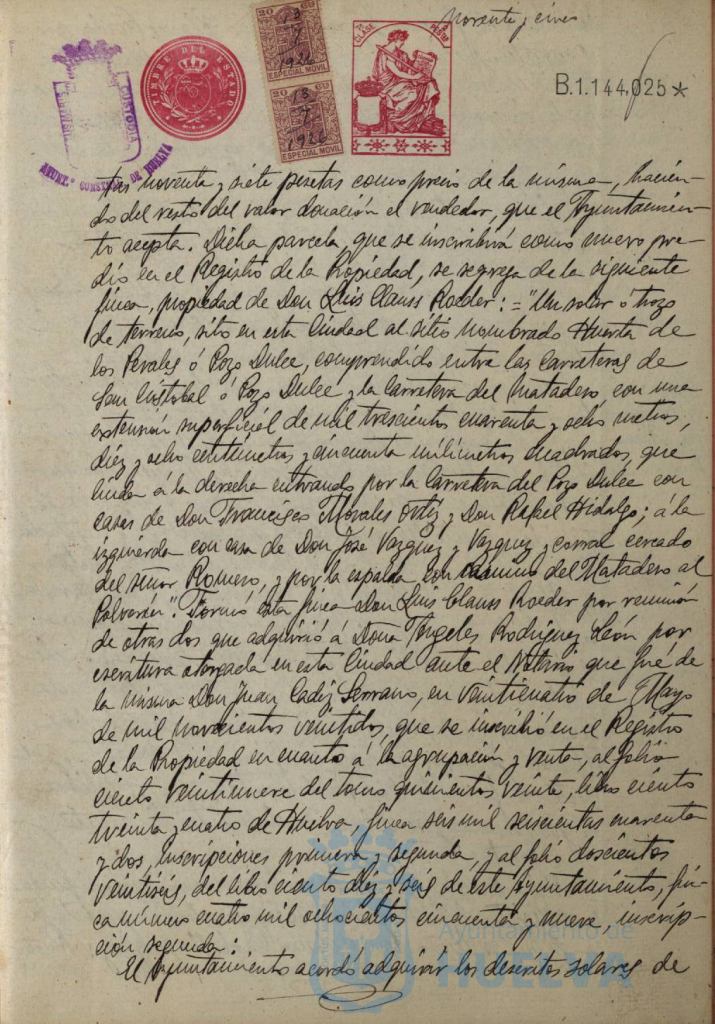 Noventa y cinco
B.1.144,025*
TIMBRE DEL ESTADO
20
13
7
1926
ESPECIAL MOVIL
20
13
7
1926
ESPECIAL MOVIL
CLASE
CUSTODIA
AYUNT.º CONSTIT. DE HUELVA
tres noventa y siete pesetas como precio de la misma, hacien-
do del resto del valor donación el vendedor, que el Ayuntamien-
to acepta. Dicha parcela, que se inscribirá como nuevo pre-
dio en el Registro de la Propiedad, se segrega de la siguiente
finca, propiedad de Don Luis Clauss Roeder: = "Un solar ó trozo
de terreno, sito en esta Ciudad al sitio nombrado Huerta de
los Perales ó Pozo Dulce, comprendido entra las carreteras de
San Cristobal ó Pozo Dulce y la Carretera del Matadero, con una
extensión superficial de mil trescientos cuarenta y ocho metros,
diez y ocho centímetros y cincuenta milímetros cuadrados, que
linda á la derecha entrando por la Carretera del Pozo Dulce con
casas de Don Francisco Morales Ortíz y Don Rafael Hidalgo; á la
izquierda con casa de Don José Vazquez y Vazquez y corral cercado
del señor Romero, y por la espalda con camino del Matadero al
Polvorín". Formó esta finca Don Luis Clauss Roeder por reunión
de otras dos que adquirió á Doña Angeles Rodriguez León por
escritura otorgada en esta Ciudad ante el Notario que fué de
la misma Don Juan Cadiz Serrano, en veinticuatro de Mayo
de mil novecientos veintidos, que se inscribió en el Registro
de la Propiedad en cuanto á la agrupación y venta, al folio
ciento veintinueve del tomo quinientos veinte, libro ciento
treinta y cuatro de Huelva, finca seis mil seiscientas cuarenta
y dos, inscripciones primera y segunda, y al folio doscientos
veintiseis, del libro ciento diez y seis de este Ayuntamiento, fin-
ca número cuatro mil ochocientos cincuenta y nueve, inscrip-
ción segunda:
El Ayuntamiento acordó adquirir los descritos solares de
Ayuntamiento de
HUELVA